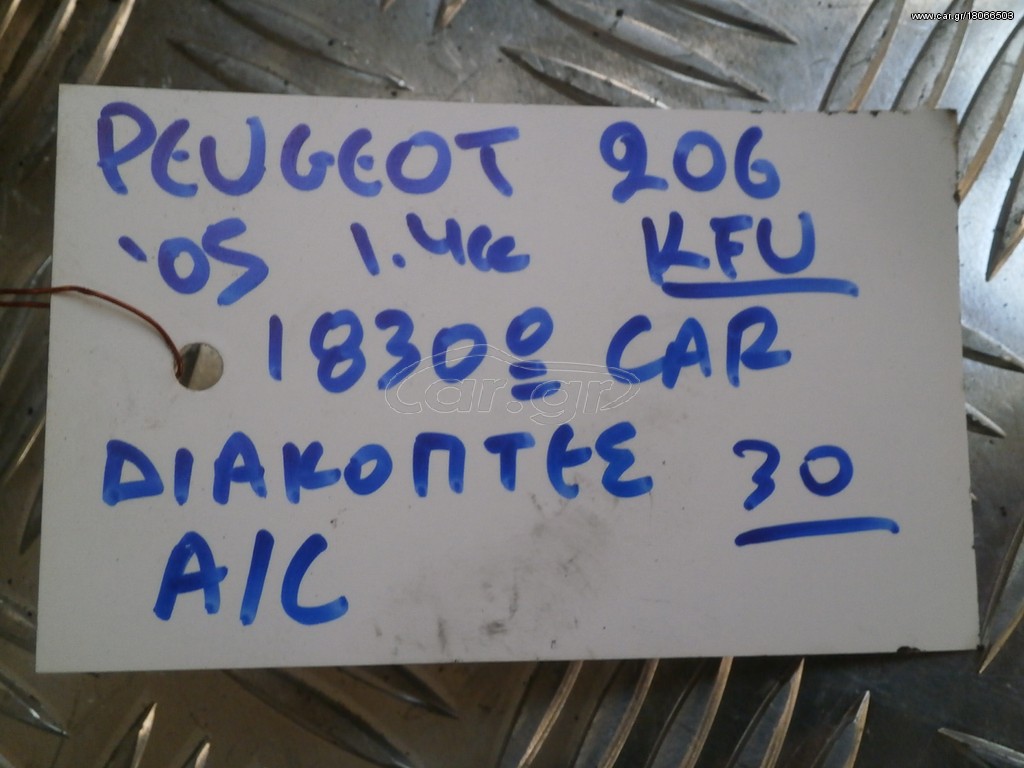 www.car.gr/18066503
PEUGEOT 206
'05 1.4cc KFU
1830º CAR
ΔΙΑΚΟΠΤΕΣ 30
A/C
car.gr